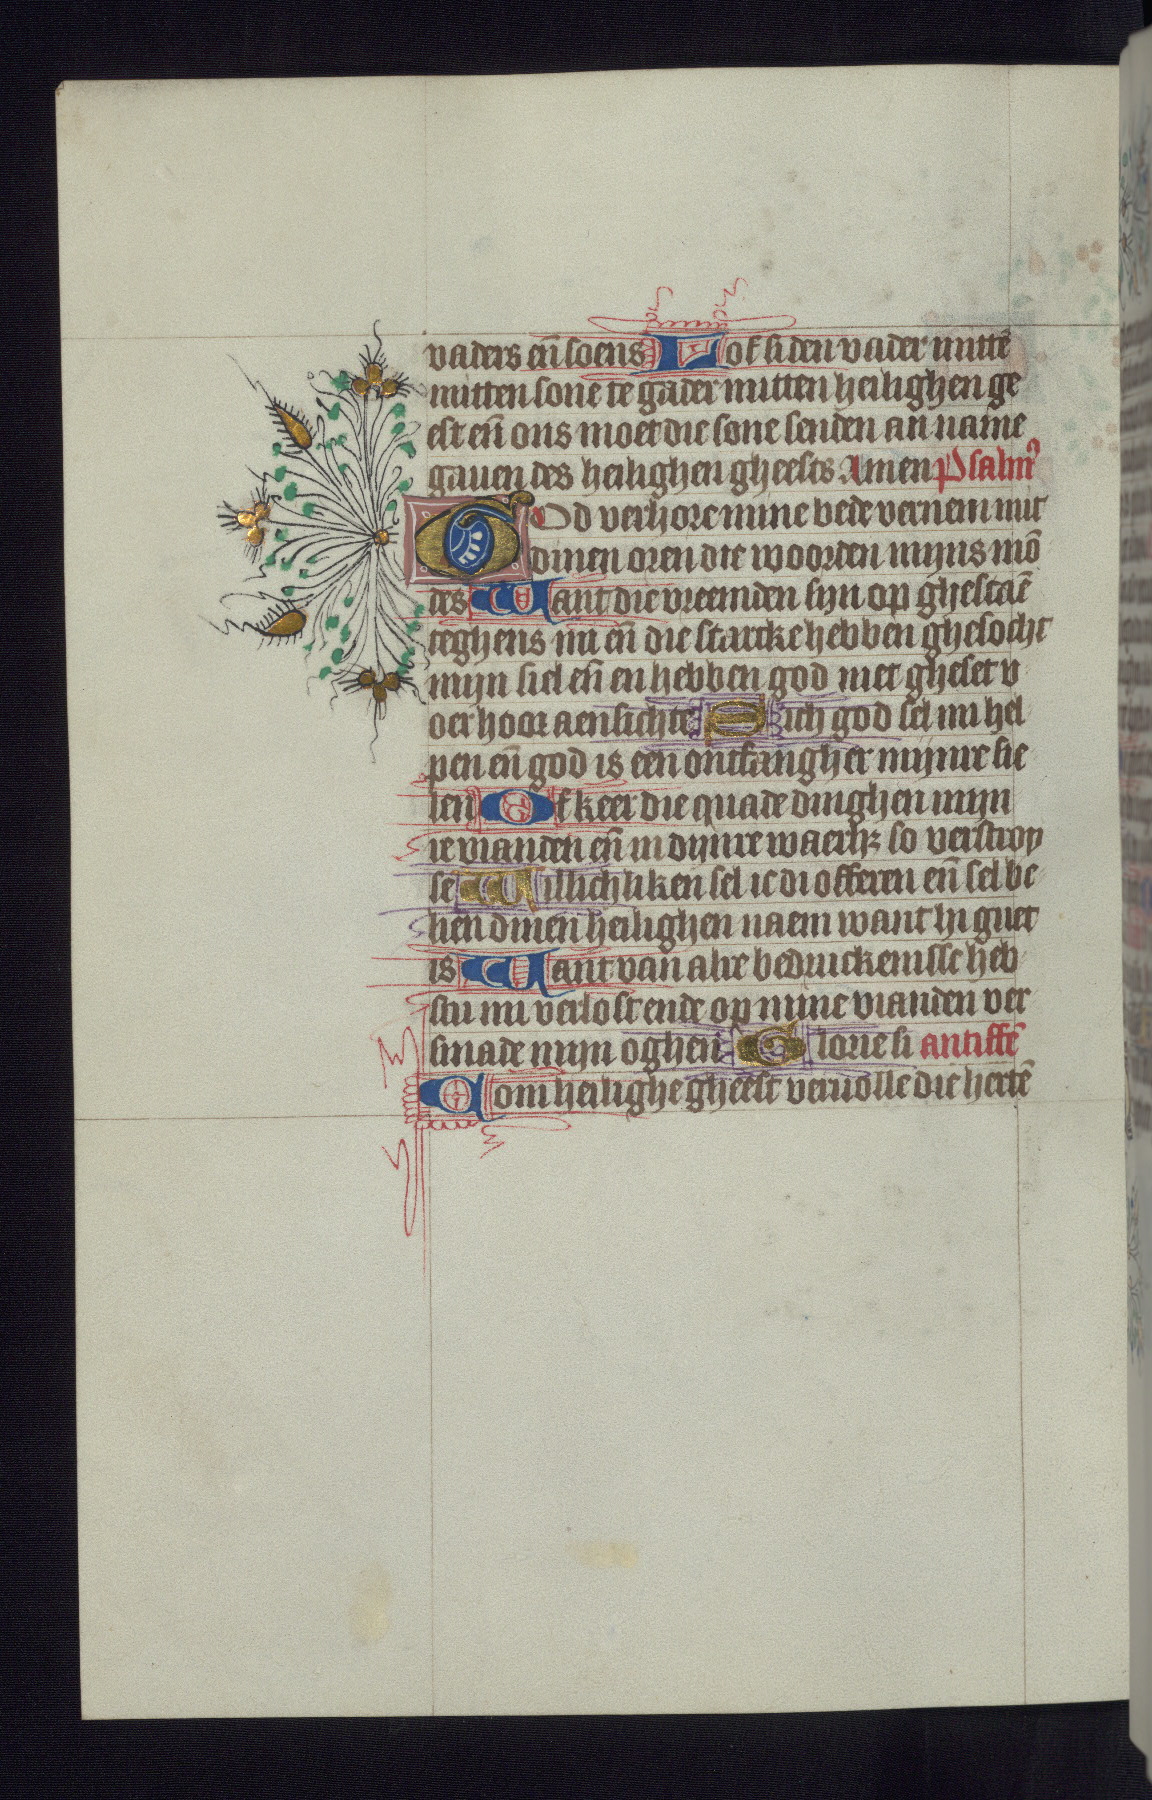 vaders en̄ soens Lof si den vader mittē
mitten sone te gader mitten heilighen ge
est en̄ ons moet die sone senden an name
gauen des heilighen gheests Amen Psalm⁹
GOd verhore mine bede vernem mit
dinen oren die woorden mijns mō
des Want die vreemden sijn op ghestaē
teghens mi en̄ die starcke hebben ghesocht
mijn siel en̄ en hebben god niet gheset v
oer hoor aensichte Sich god sel mi hel
pen en̄ god is een ontfangher mijnre sie
len Of keer die quade dinghen mijn
re vianden en̄ in dijnre waerh; so verstroy
se Willichliken sel ic di offeren en̄ sel be
lien dinen heilighen naem want hi guet
is Want van alre bedruckenisse heb
stu mi verlost ende op mine vianden ver
smade mijn oghen Glorie si antiffē
Com heilighe gheest vervolle die hertē